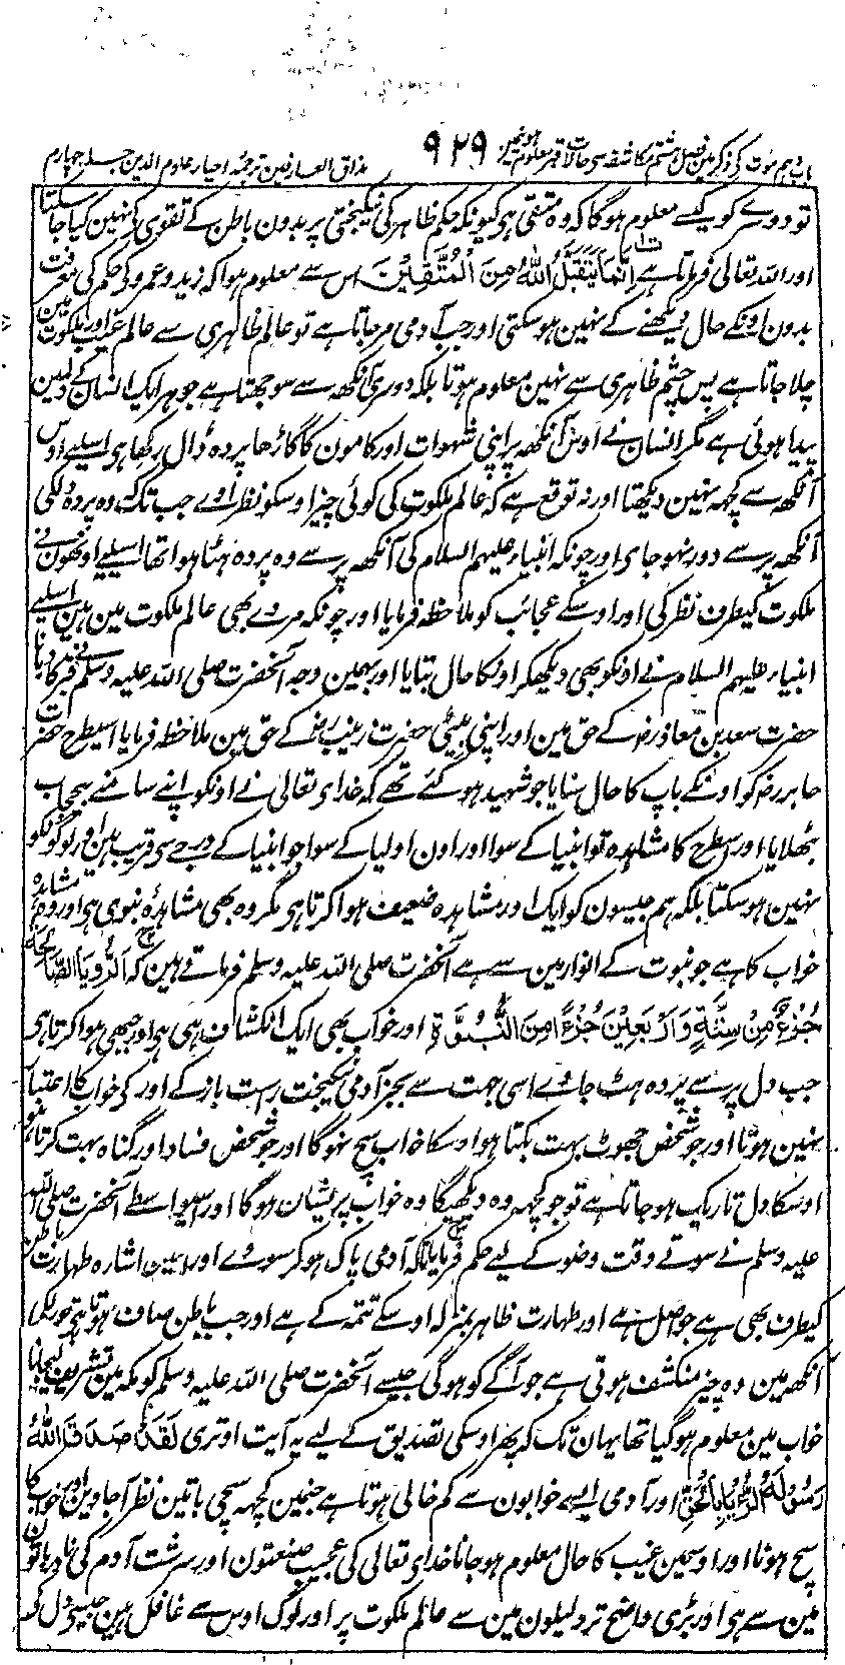 باب دہم موت کی ذکر مین فصل ہشتم مکاشفہ سی حالات قبر معلوم ہونیمین ۹۲۹ مذاق العارفین ترجمہ احیاء علوم الدین جلد چہارم
تو دوسرے کو کیسے معلوم ہوگا کہ وہ متقی ہی کیونکہ حکم ظاہر کی نیکبختی پر بدون باطن کے تقوی کی نہین کیا جا سکتا
اور اللہ تعالی فرماتا ہے اِنَّمَا یَتَقَبَّلُ اللّٰہُ مِنَ الْمُتَّقِیْنَ اس سے معلوم ہوا کہ زید و عمرو کی حکم کی معرفت
بدون اونکے حال دیکھنے کے نہین ہو سکتی اور جب آدمی مر جاتا ہے تو عالم ظاہری سے عالم غیب اور ملکوت مین
چلا جاتا ہے پس چشم ظاہری سے نہین معلوم ہوتا بلکہ دوسری آنکھہ سے سوجھتا ہے جو ہر ایک انسان کے دل مین
پیدا ہوئی ہے مگر انسان نے اوس آنکھہ پر اپنی شہوات اور کامون کا گاڑھا پردہ ڈال رکھا ہی اسلیے اوس
آنکھہ سے کچھہ نہین دیکھتا اور نہ توقع ہے کہ عالم ملکوت کی کوئی چیز اوسکو نظر آوے جب تک کہ وہ پردہ دلکی
آنکھہ پر سے دور نہو جاوی اور چونکہ انبیاء علیہم السلام کی آنکھہ پر سے وہ پردہ ہٹا ہوا تھا اسلیے اونھون نے
ملکوت کیطرف نظر کی اور اوسکے عجائب کو ملاحظہ فرمایا اور چونکہ مردے بھی عالم ملکوت مین ہین اسلیے
انبیاء علیہم السلام نے اونکو بھی دیکھکر اونکا حال بتایا اور بہمین وجہ آنحضرت صلی اللہ علیہ وسلم نے قبر کا دبانا
حضرت سعد بن معاذ رضہ کے حق مین اور اپنی بیٹی حضرت زینب رضہ کے حق مین ملاحظہ فرمایا اسیطرح حضرت
جابر رضہ کو اونکے باپ کا حال سنایا جو شہید ہو گئے تھے کہ خدای تعالی نے اونکو اپنے سامنے بیحجاب
بٹھلایا اور اسطرح کا مشاہدہ تو انبیا کے سوا اور اون اولیا کے سوا جو انبیا کے درجے سی قریب ہین اور لوگونکو
نہین ہو سکتا بلکہ ہم جیسون کو ایک اور مشاہدہ ضعیف ہوا کرتا ہی مگر وہ بھی مشاہدہ نبوی ہی اور وہ مشاہدہ
خواب کا ہے جو نبوت کے انوار مین سے ہے آنحضرت صلی اللہ علیہ وسلم فرماتے ہین کہ اَلرُّؤْیَا الصَّالِحَۃُ
جُزْءٌ مِنْ سِتَّۃٍ وَّاَرْبَعِیْنَ جُزْءًا مِنَ النُّبُوَّۃِ اور خواب بھی ایک انکشاف ہی ہی اور جبھی ہوا کرتا ہی
جب دل پر سے پردہ ہٹ جاوے اسی جہت سے بجز آدمی نیکبخت راست باز کے اور کی خواب کا اعتبار
نہین ہوتا اور جو شخص جھوٹ بہت بکتا ہو اوسکا خواب سچ نہوگا اور جو شخص فساد اور گناہ بہت کرتا ہو
اوسکا دل تاریک ہو جاتا ہے تو جو کچھہ وہ دیکھیگا وہ خواب پریشان ہوگا اور اسیواسطے آنحضرت صلی اللہ
علیہ وسلم نے سوتے وقت وضو کے لیے حکم فرمایا تاکہ آدمی پاک ہو کر سووے اور اسمین اشارہ طہارت باطن
کیطرف بھی ہے جو اصل ہے اور طہارت ظاہر بمنزلہ اوسکے تتمہ کے ہے اور جب باطن صاف ہوتا ہی تو دلکی
آنکھہ مین وہ چیز منکشف ہوتی ہے جو آگے کو ہوگی جیسے آنحضرت صلی اللہ علیہ وسلم کو مکہ مین تشریف لیجانا
خواب مین معلوم ہو گیا تھا یہان تک کہ پھر اوسکی تصدیق کے لیے یہ آیت اوتری لَقَدْ صَدَقَ اللّٰہُ
رَسُوْلَہُ الرُّؤْیَا بِالْحَقِّ اور آدمی ایسے خوابون سے کم خالی ہوتا ہے جنمین کچھہ سچی باتین نظر آجاوین اور خواب کا
سچ ہونا اور اوسمین غیب کا حال معلوم ہو جانا خدای تعالی کی عجیب صنعتون اور سرشت آدم کی نادر باتون
مین سے ہی اور بڑی واضح تر دلیلون مین سے عالم ملکوت پر اور لوگ اوس سے غافل ہین جیسی دل کی